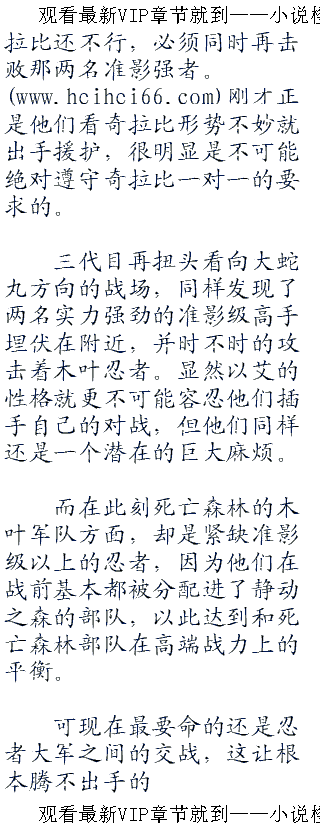 观看最新VIP章节就到——小说检
拉比还不行，必须同时再击
败那两名准影强者。
(www.hcihci66.com)刚才正
是他们看奇拉比形势不妙就
出手援护，很明显是不可能
绝对遵守奇拉比一对一的要
求的。
三代目再扭头看向大蛇
丸方向的战场，同样发现了
两名实力强劲的准影级高手
埋伏在附近，并时不时的攻
击着木叶忍者。显然以艾的
性格就更不可能容忍他们插
手自己的对战，但他们同样
还是一个潜在的巨大麻烦。
而在此刻死亡森林的木
叶军队方面，却是紧缺准影
级以上的忍者，因为他们在
战前基本都被分配进了静动
之森的部队，以此达到和死
亡森林部队在高端战力上的
平衡。
可现在最要命的还是忍
者大军之间的交战，这让根
本腾不出手的
观看最新VIP章节就到——小说检